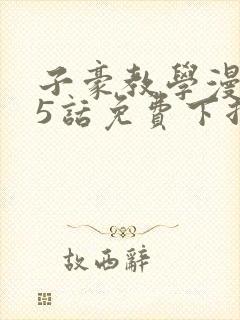 子豪教學漫
5話免費下
故西辭